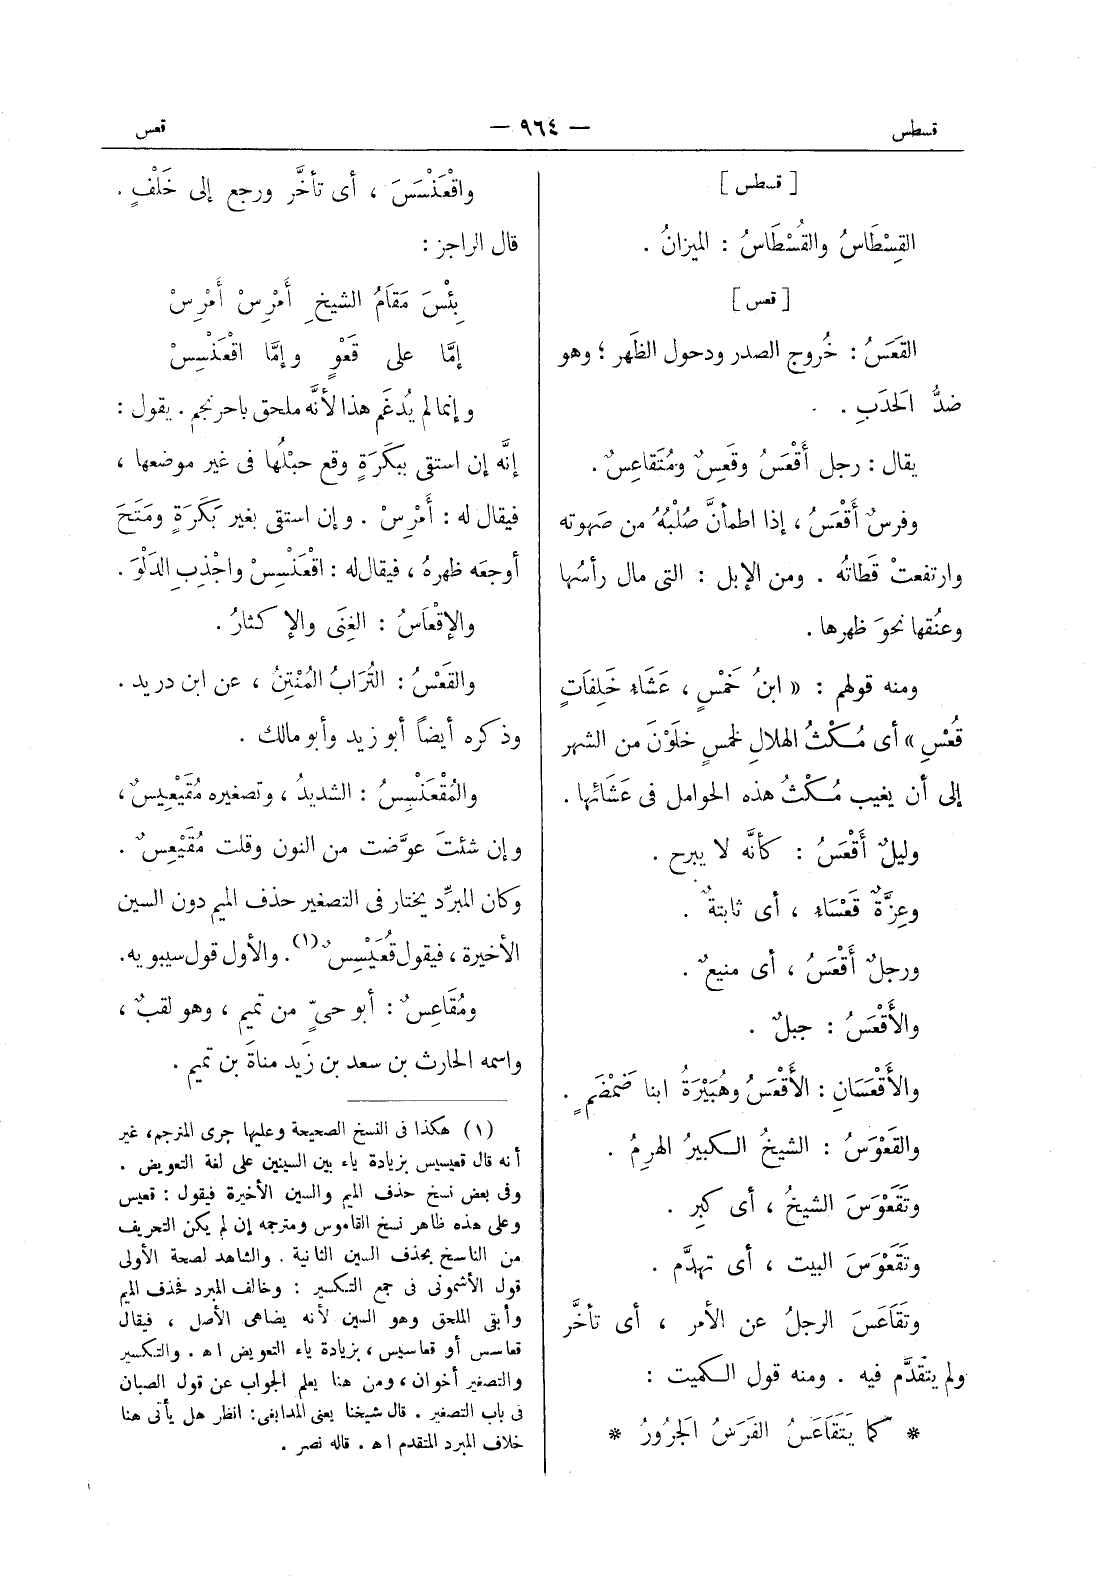 قسطس
— ٩٦٤ —
قعس
[ قسطس ]
القِسْطَاسُ والقُسْطَاسُ : الميزانُ .
[ قعس ]
القَعَسُ : خُروج الصدر ودخول الظَهر ؛ وهو
ضدُّ الحَدَبِ .
يقال : رجل أَقْعَسُ وقَعِسٌ ومُتَقاعِسٌ .
وفرسٌ أَقْعَسُ ، إذا اطمأنَّ صُلْبُهُ من صَهوته
وارتفعتْ قَطَاتُه . ومن الإبل : التى مال رأسُها
وعنُقها نحوَ ظهرها .
ومنه قولهم : « ابنُ خَمْسٍ ، عَشَاءُ خَلِفَاتٍ
قُعْسِ » أى مُكْثُ الهلالِ لخمسٍ خلَوْنَ من الشهر
إلى أن يغيب مُكْثُ هذه الحوامل فى عَشَائها .
وليلٌ أَقْعَسُ : كأنَّه لا يبرح .
وعِزَّةٌ قَعْسَاءُ ، أى ثابتةٌ .
ورجلٌ أَقْعَسُ ، أى منيعٌ .
والأَقْعَسُ : جبلٌ .
والأَقْعَسَانِ : الأَقْعَسُ وهُبَيْرَةُ ابنا ضَمْضَمٍ .
والقَعْوَسُ : الشيخُ الكبيرُ الهرِمُ .
وتَقَعْوَسَ الشيخُ ، أى كبِر .
وتَقَعْوَسَ البيت ، أى تهدَّم .
وتَقَاعَسَ الرجلُ عن الأمر ، أى تأخَّر
ولم يتقدَّم فيه . ومنه قول الكميت :
* كما يَتَقَاعَسُ الفَرَسُ الجَرُورُ *
واقْعَنْسَسَ ، أى تأخَّر ورجع إلى خَلْفٍ .
قال الراجز :
بِئْسَ مَقَامُ الشيخِ أَمْرِسْ أَمْرِسْ
إمَّا على قَعْوٍ وإمَّا اقْعَنْسِسْ
وإنما لم يُدغَم هذا لأنَّه ملحق باحرنجم . يقول :
إنَّه إن استقى ببَكَرَةٍ وقع حبْلُها فى غير موضعها ،
فيقال له : أَمْرِسْ . وإن استقى بغير بَكَرَةٍ ومَتَحَ
أوجعَه ظهرهُ ، فيقال له : اقْعَنْسِسْ واجْذِبِ الدَلْوَ .
والإقْعَاسُ : الغِنَى والإكثارُ .
والقَعْسُ : التُرَابُ المُنْتِنُ ، عن ابن دريد .
وذكره أيضاً أبو زيد وأبو مالك .
والمُقْعَنْسِسُ : الشديدُ ، وتصغيره مُقَيْعِيسٌ ،
وإن شئتَ عوَّضت من النون وقلت مُقَيْعِسٌ .
وكان المبرِّد يختار فى التصغير حذف الميم دون السين
الأخيرة ، فيقول قُعَيْسِسٌ (١) . والأول قول سيبويه .
ومُقَاعِسٌ : أبو حىٍّ من تميم ، وهو لقبٌ ،
واسمه الحارث بن سعد بن زَيد مناةَ بن تميم .
(١) هكذا فى النسخ الصحيحة وعليها جرى المترجم ، غير
أنه قال قعيسيس بزيادة ياء بين السينين على لغة التعويض .
وفى بعض نسخ حذف الميم والسين الأخيرة فيقول : قعيس
وعلى هذه ظاهر نسخ القاموس ومترجمه إن لم يكن التحريف
من الناسخ بحذف السين الثانية . والشاهد لصحة الأولى
قول الأشمونى فى جمع التكسير : وخالف المبرد فحذف الميم
وأبقى الملحق وهو السين لأنه يضاهى الأصل ، فيقال
قعاسس أو قعاسيس ، بزيادة ياء التعويض اه . والتكسير
والتصغير أخوان ، ومن هنا يعلم الجواب عن قول الصبان
فى باب التصغير . قال شيخنا يعنى المدابغى : انظر هل يأتى هنا
خلاف المبرد المتقدم اه . قاله نصر .